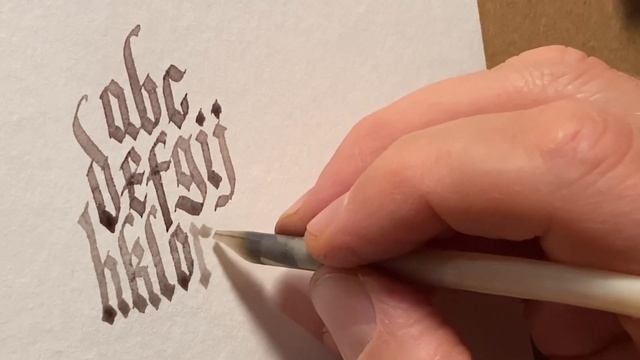 abc
defgij
hklor